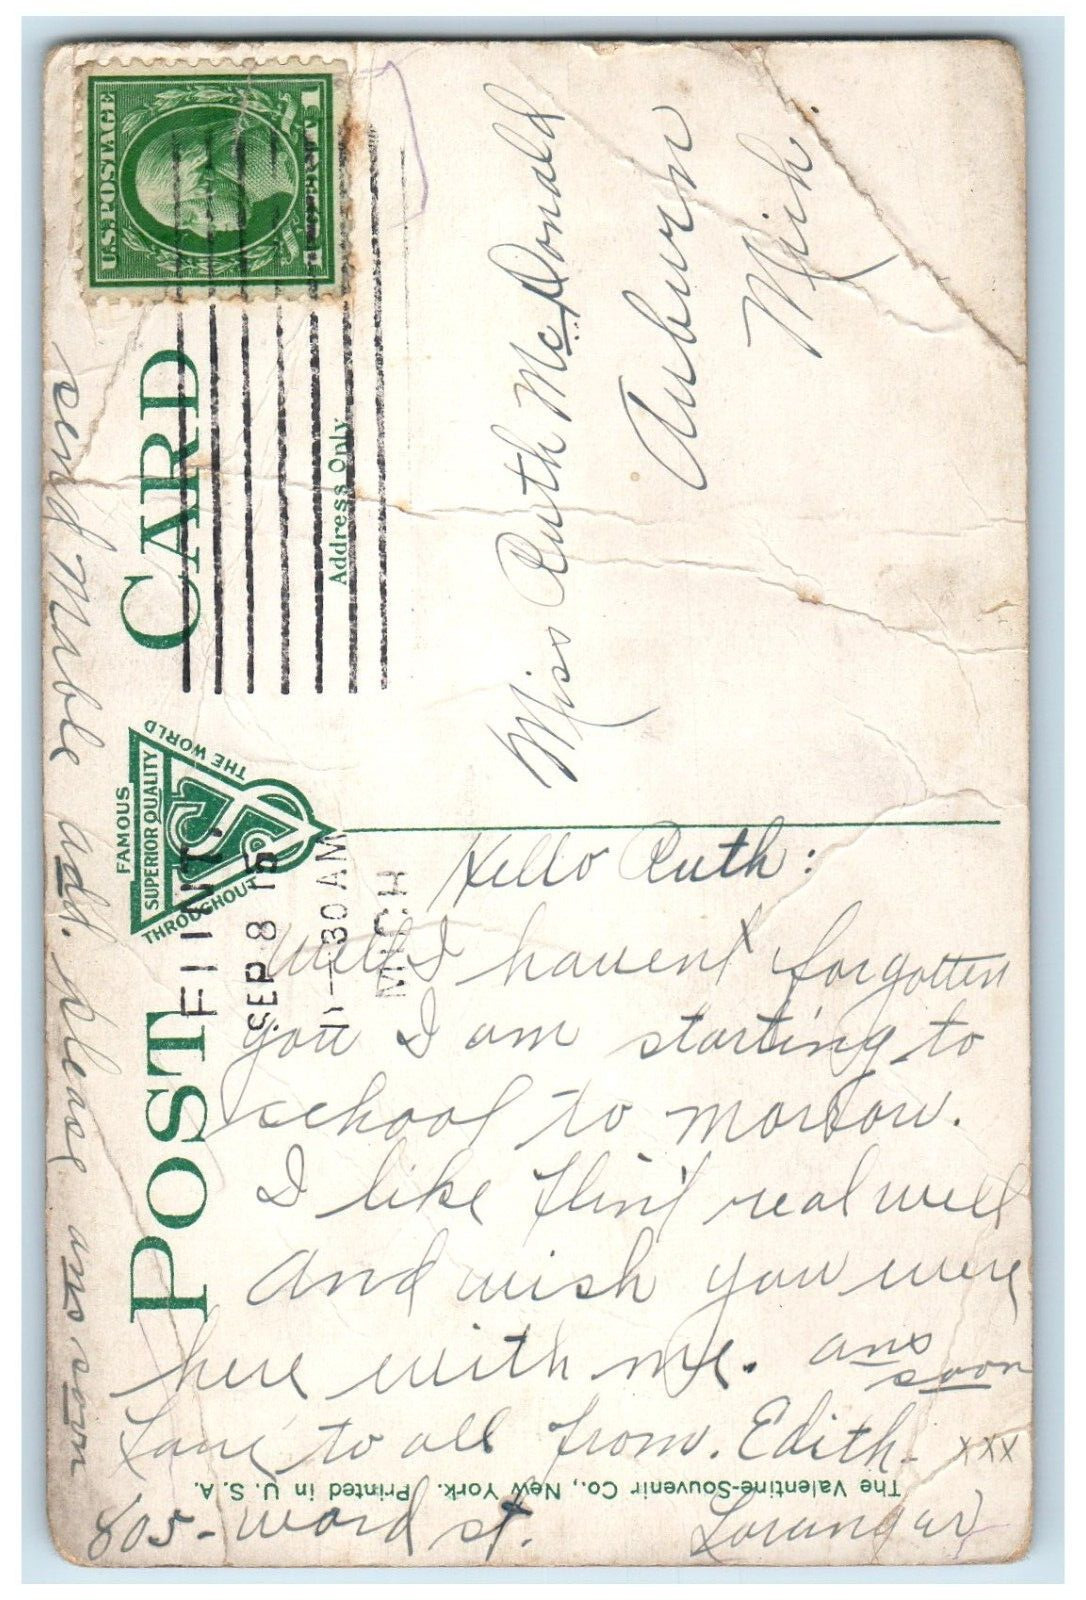 U.S. POSTAGE
1
POST CARD
Address Only
FAMOUS
SUPERIOR QUALITY
THROUGHOUT
THE WORLD
FLINT,
SEP 8 15
11-30 AM
MICH
Miss Ruth McDonald
Auburn
Mich.
Hello Ruth:
Well I havent forgotten
you I am starting to
school to morrow.
I like Flint real well
And wish you were
here with me. ans
soon
Love to all from. Edith. xxx
The Valentine-Souvenir Co., New York. Printed in U. S. A.
805- Ward st. Loranger
send Mable add. please ans soon